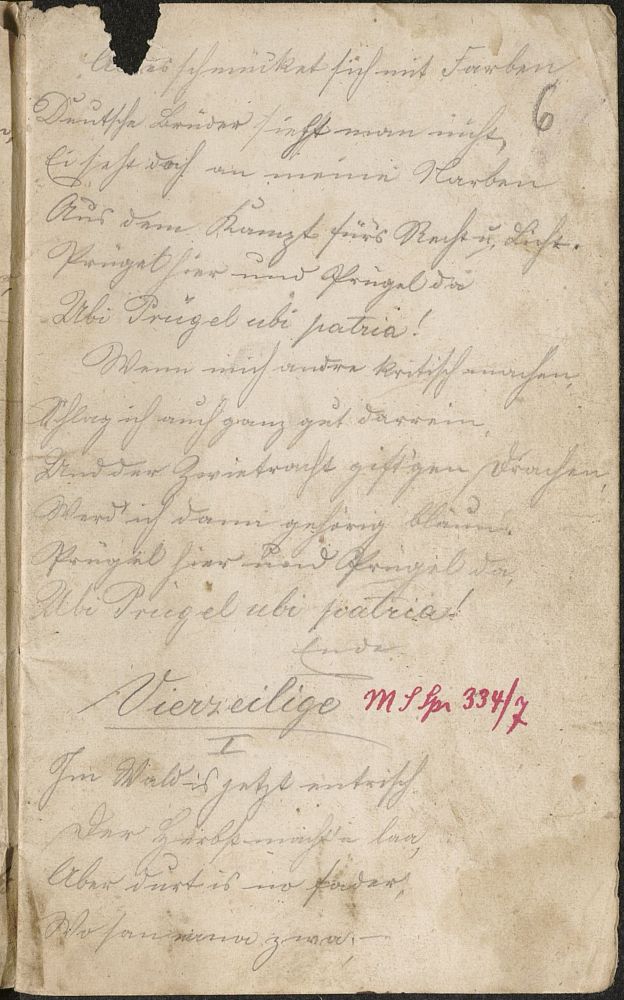 Alles schmücket sich mit Farben
6
Deutsche Brüder sieht man nicht,
Ei seht doch an meine Narben
Aus dem Kampf fürs Recht u. Licht.
Prügel hier und Prügel da
Ubi Prügel ubi patria!
Wenn mich andre kritisch machen,
Schlag ich auch ganz gut darrein,
Und der Zwietracht gift'gen Drachen,
Werd' ich dann gehörig bläun.
Prügel hier und Prügel da,
Ubi Prügel ubi patria!
Ende.
Vierzeilige
MS Spr 334/7
I
Im Wald is jetzt entrisch
Der Herbst macht'n laa,
Aber durt is no fader,
Wo san zwa.—